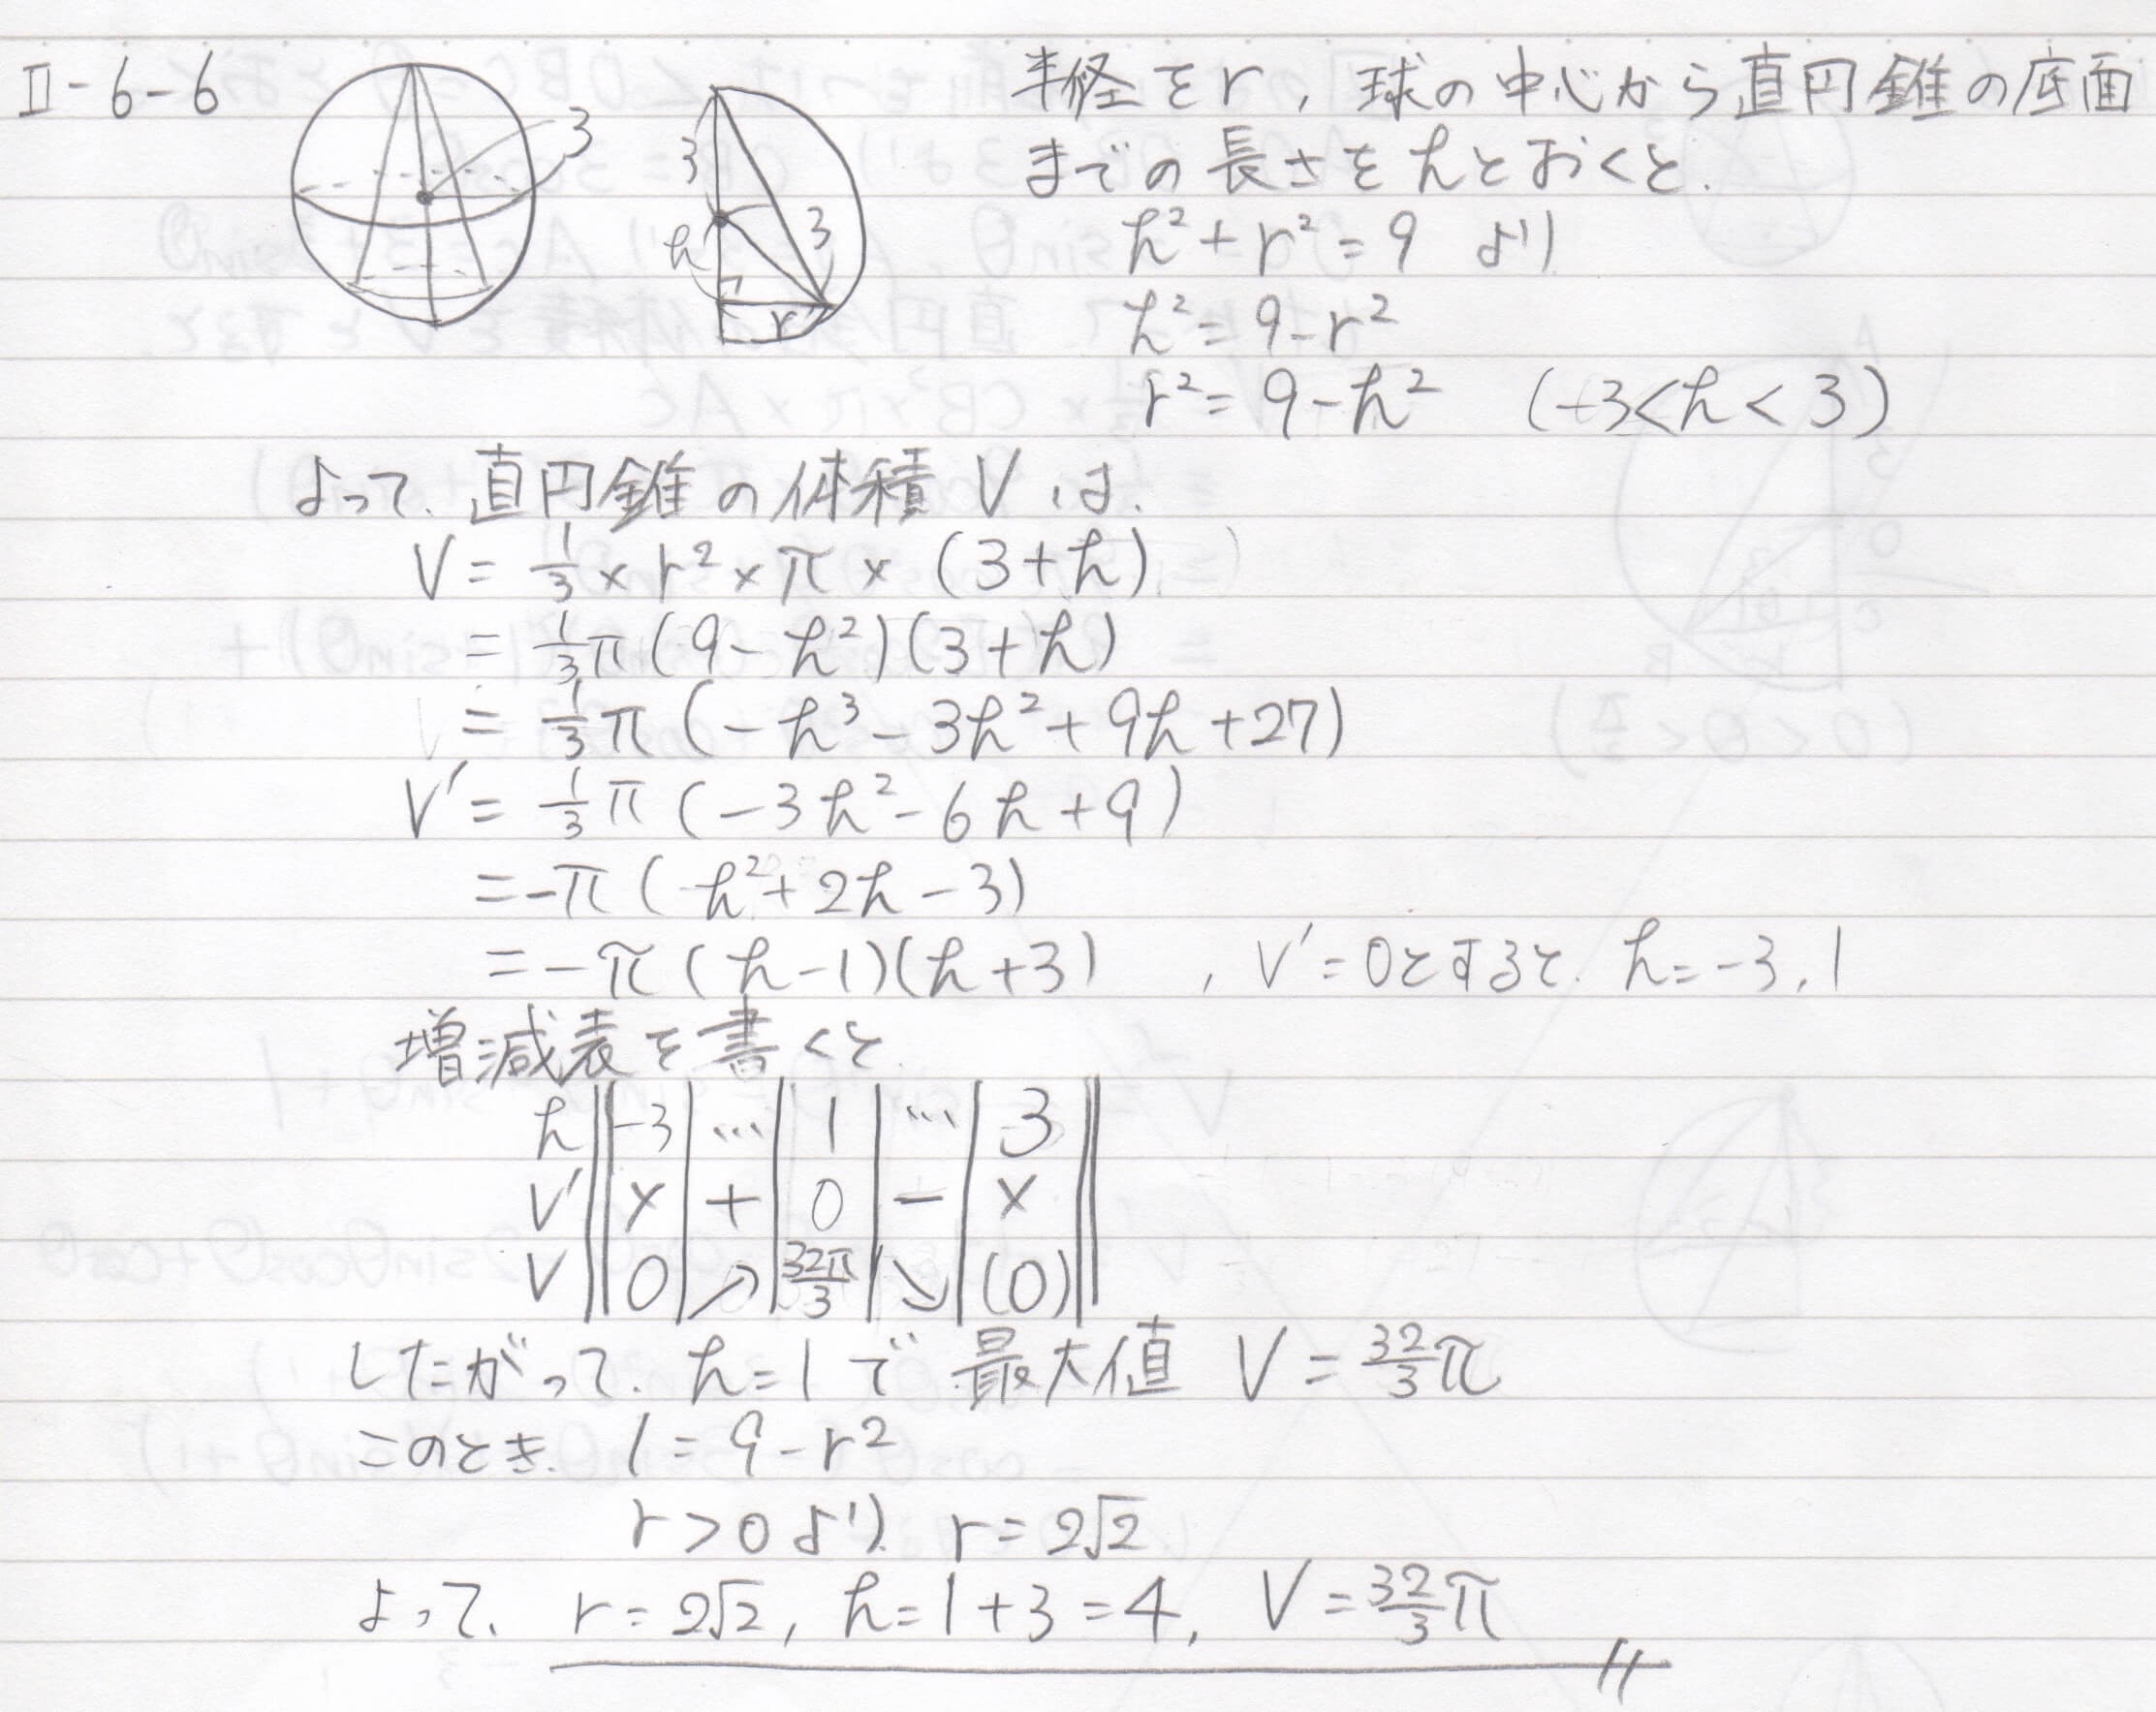 II-6-6
3
3
h
3
r
半径をr, 球の中心から直円錐の底面
までの長さをhとおくと.
h²+r²=9 より
h²=9-r²
r²=9-h² (-3<h<3)
よって. 直円錐の体積 V は.
V=1/3×r²×π×(3+h)
=1/3π(9-h²)(3+h)
=1/3π(-h³-3h²+9h+27)
V'=1/3π(-3h²-6h+9)
=-π(h²+2h-3)
=-π(h-1)(h+3) , V'=0とすると. h=-3,1
増減表を書くと
h -3 … 1 … 3
V' × + 0 - ×
V 0 ↗ 32π/3 ↘ (0)
したがって. h=1で最大値 V=32/3π
このとき. 1=9-r²
r>0より. r=2√2
よって、 r=2√2, h=1+3=4, V=32/3π